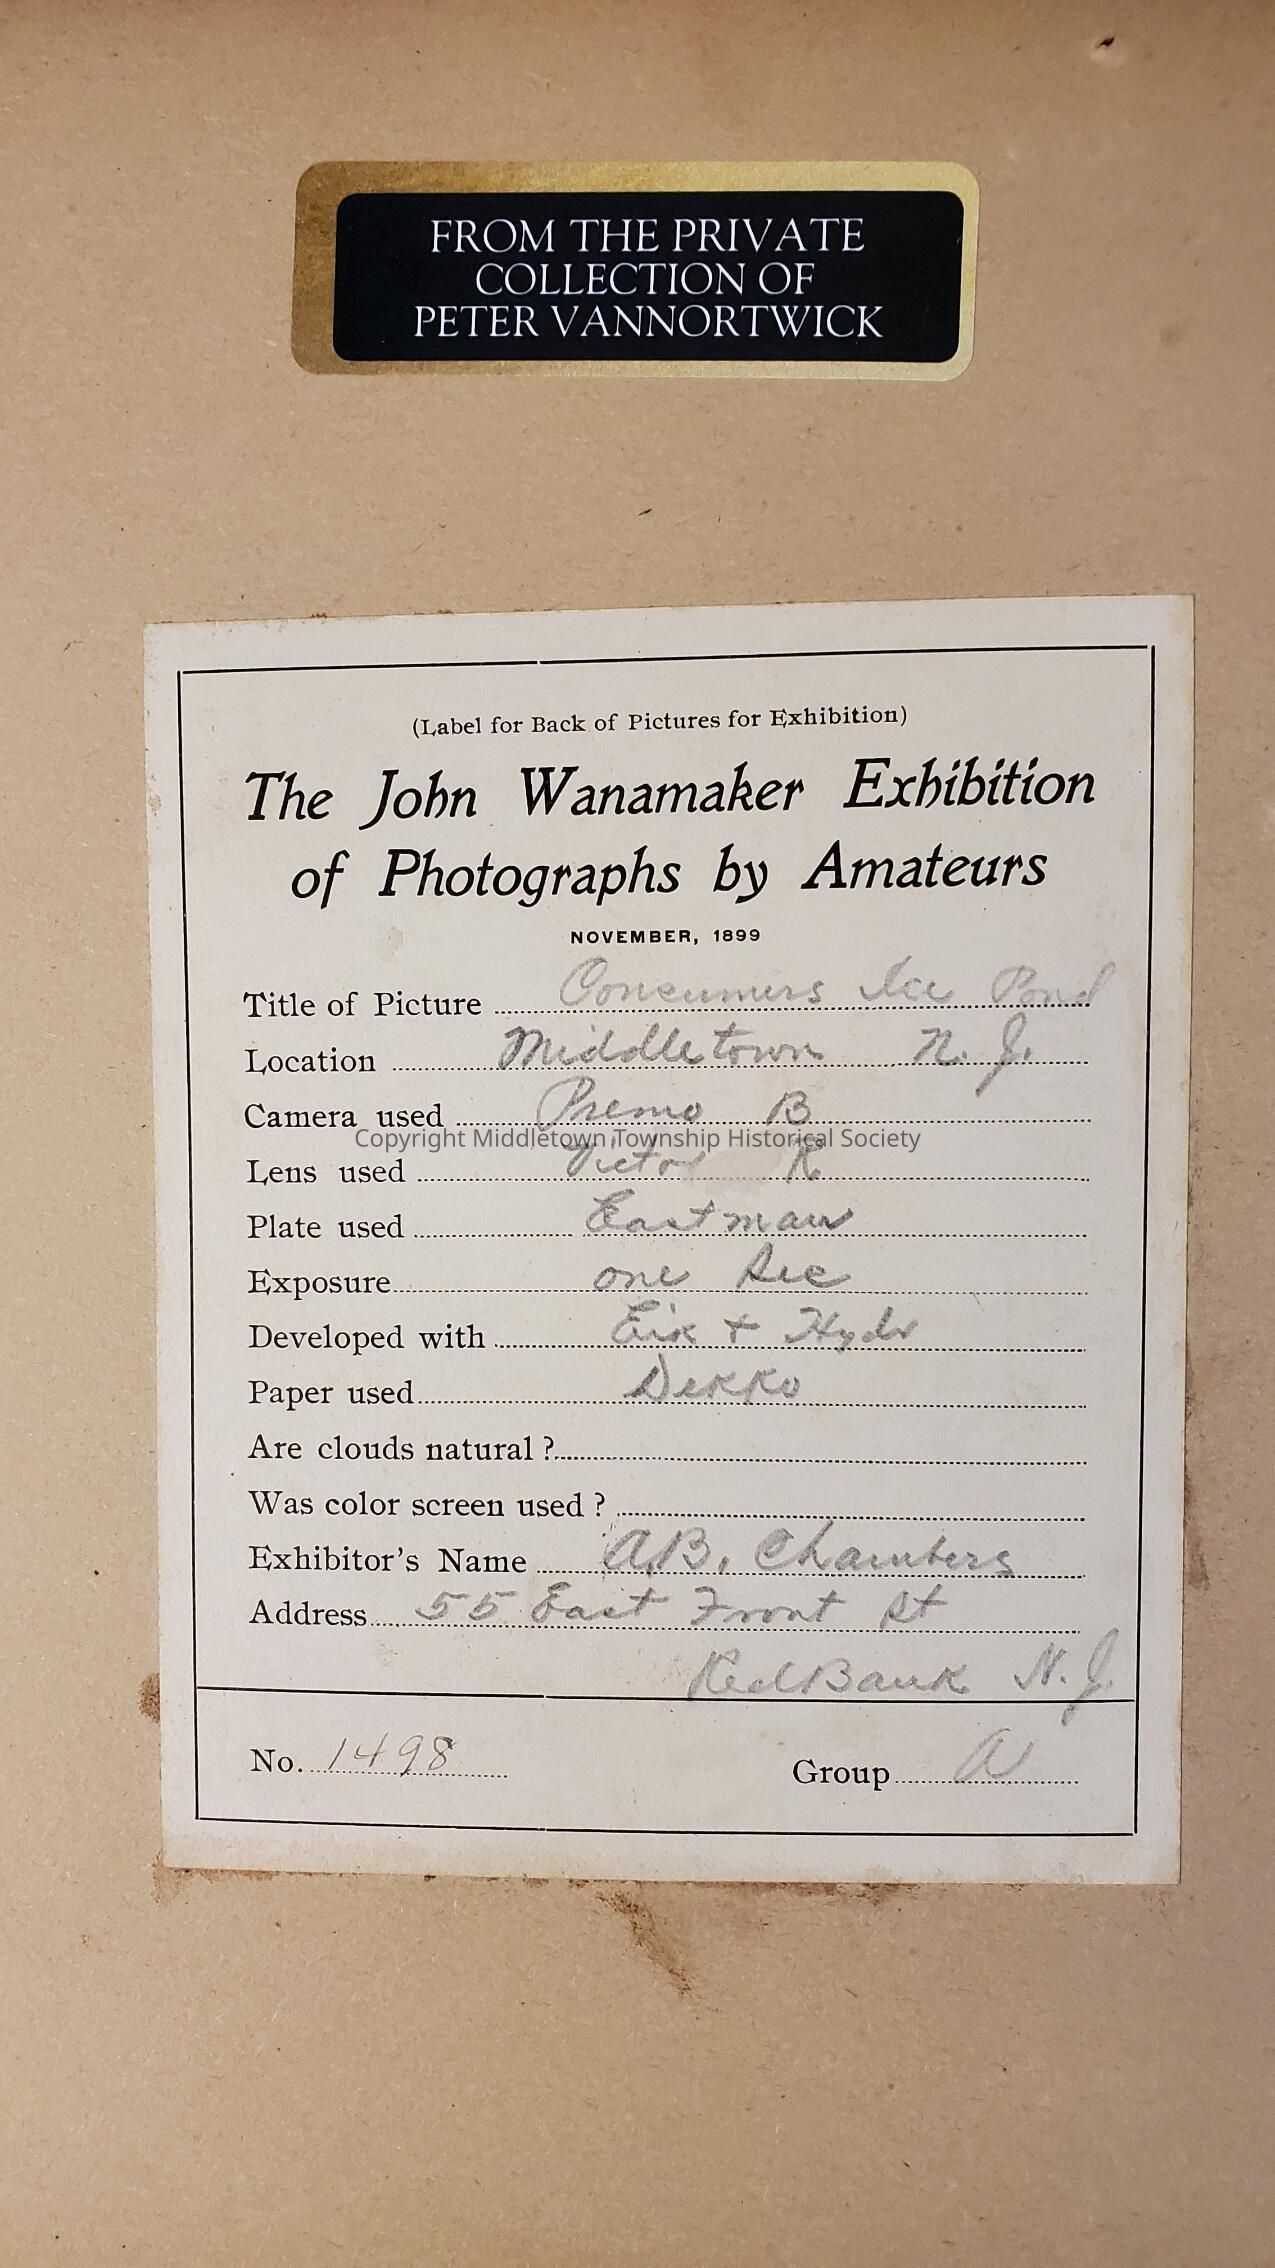 FROM THE PRIVATE
COLLECTION OF
PETER VANNORTWICK
(Label for Back of Pictures for Exhibition)
The John Wanamaker Exhibition
of Photographs by Amateurs
NOVEMBER, 1899
Title of Picture Consumers Ice Pond
Location Middletown N. J.
Camera used Premo B
Copyright Middletown Township Historical Society
Lens used Victor R
Plate used Eastman
Exposure one Sec
Developed with Eik + Hydr
Paper used Dekko
Are clouds natural ?
Was color screen used ?
Exhibitor's Name A.B. Chambers
Address 55 East Front St
Red Bank N. J.
No. 1498 Group A